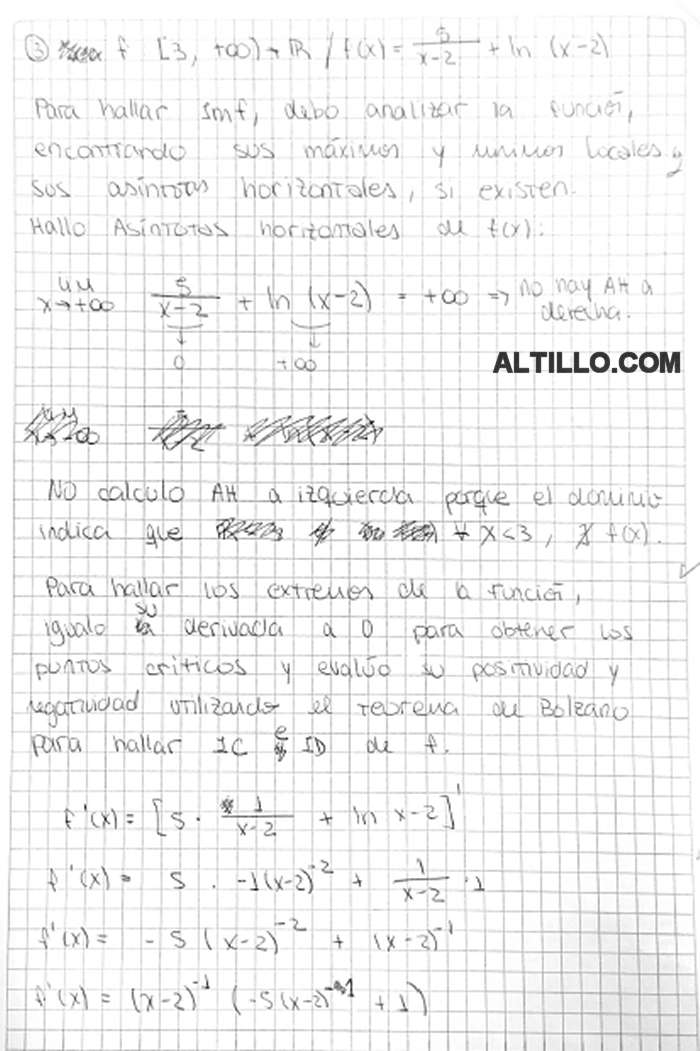 ③ f [3, +∞) → ℝ / f(x) = 5/(x-2) + ln (x-2)
Para hallar Imf, debo analizar la función,
encontrando sus máximos y mínimos locales y
sus asíntotas horizontales, si existen.
Hallo Asíntotas horizontales de f(x):
lim x→+∞ 5/(x-2) + ln (x-2) = +∞ => no hay AH a
derecha.
0 +∞
ALTILLO.COM
No calculo AH a izquierda porque el dominio
indica que ∀ x<3, ∄ f(x).
Para hallar los extremos de la función,
igualo su derivada a 0 para obtener los
puntos críticos y evalúo su positividad y
negatividad utilizando el teorema de Bolzano
para hallar IC e ID de f.
f'(x) = [5 · 1/(x-2) + ln x-2]'
f'(x) = 5 · -1(x-2)⁻² + 1/(x-2) · 1
f'(x) = -5 (x-2)⁻² + (x-2)⁻¹
f'(x) = (x-2)⁻¹ (-5(x-2)⁻¹ + 1)